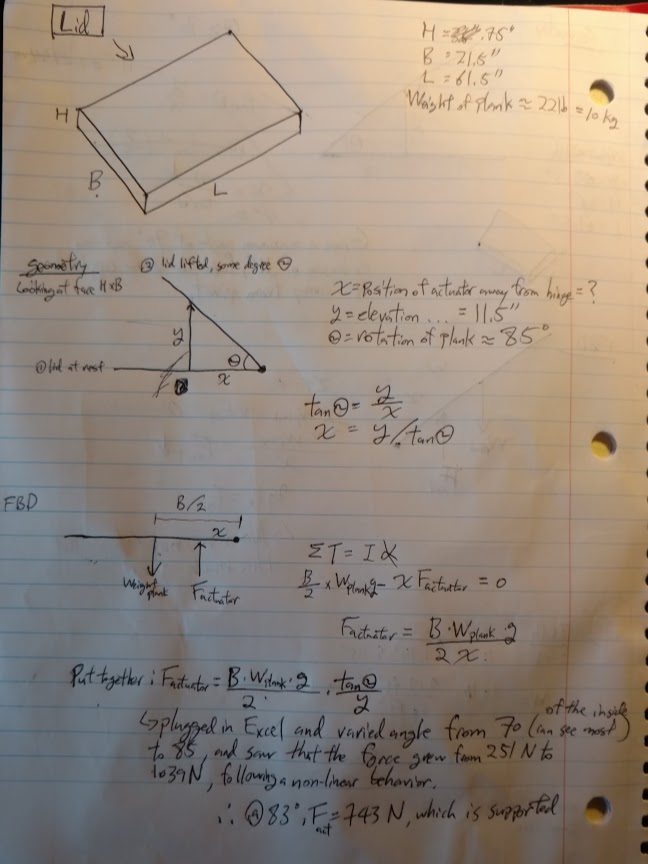 Lid
H = .75"
B = 21.5"
L = 61.5"
Weight of plank ≈ 22lb = 10kg
H
B
L
Geometry
Looking at face HxB
② lid lifted, some degree θ
① lid at rest
y
θ
x
x = Position of actuator away from hinge = ?
y = elevation ... = 11.5"
θ = rotation of plank ≈ 85°
tanθ = y/x
x = y/tanθ
FBD
B/2
x
Weight plank
Factuator
ΣT = Iα
B/2 × Wplank g - x Factuator = 0
Factuator = B·Wplank·g / 2x
Put together: Factuator = B·Wplank·g / 2 · tanθ / y
↳ plugged in Excel and varied angle from 70 (can see most of the inside)
to 85, and saw that the force grew from 251N to
1039N, following a non-linear behavior.
∴ @ 83°, Fact = 743 N, which is supported